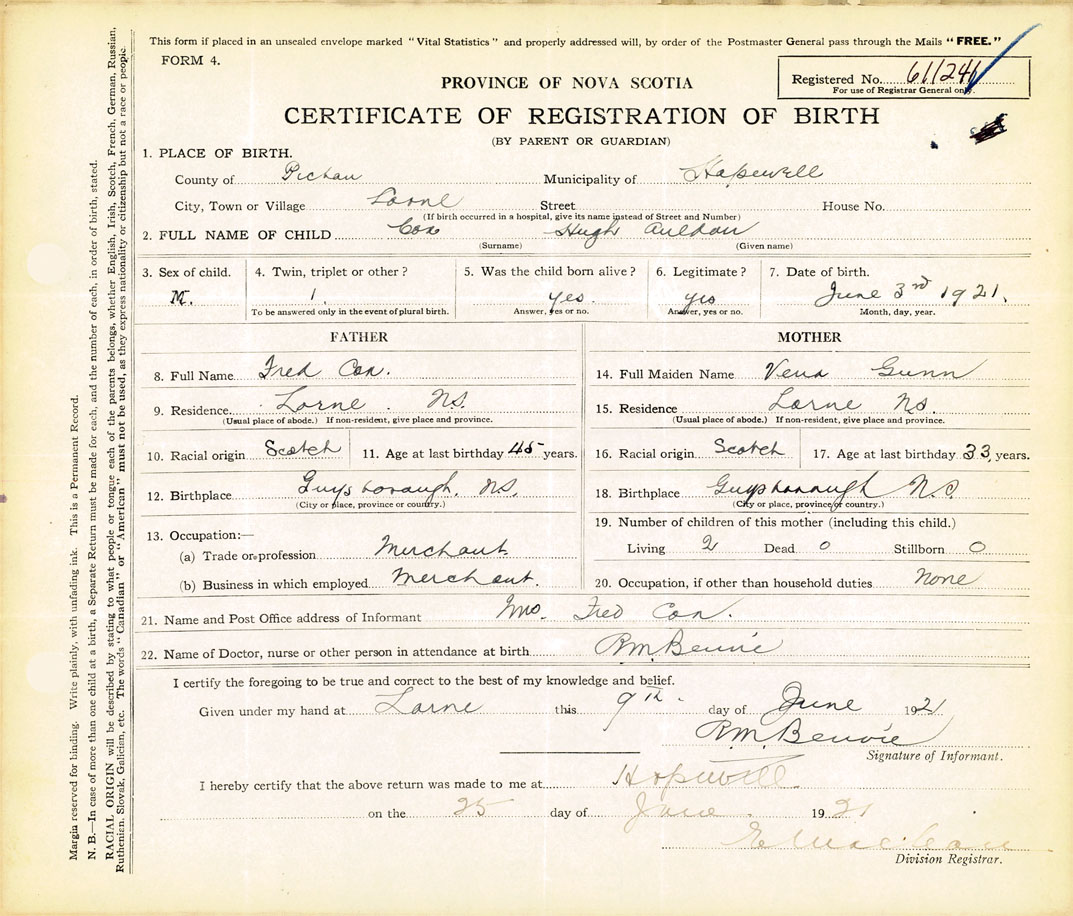 This form if placed in an unsealed envelope marked "Vital Statistics" and properly addressed will, by order of the Postmaster General pass through the Mails "FREE."
FORM 4.
Registered No. 611246
For use of Registrar General only.
PROVINCE OF NOVA SCOTIA
CERTIFICATE OF REGISTRATION OF BIRTH
(BY PARENT OR GUARDIAN)
1. PLACE OF BIRTH.
County of Pictou Municipality of Hopewell
City, Town or Village Lorne Street House No.
(If birth occurred in a hospital, give its name instead of Street and Number)
2. FULL NAME OF CHILD Cox Hugh Auldon
(Surname) (Given name)
3. Sex of child. 4. Twin, triplet or other? 5. Was the child born alive? 6. Legitimate? 7. Date of birth.
M. 1. yes. yes June 3rd 1921.
To be answered only in the event of plural birth. Answer, yes or no. Answer, yes or no. Month, day, year.
FATHER
8. Full Name Fred Cox.
9. Residence Lorne. N.S.
(Usual place of abode.) If non-resident, give place and province.
10. Racial origin Scotch 11. Age at last birthday 45 years.
12. Birthplace Guysborough. N.S.
(City or place, province or country.)
13. Occupation:—
(a) Trade or profession Merchant
(b) Business in which employed Merchant.
MOTHER
14. Full Maiden Name Vena Gunn
15. Residence Lorne N.S.
(Usual place of abode.) If non-resident, give place and province.
16. Racial origin Scotch 17. Age at last birthday 33, years.
18. Birthplace Guysborough N.S.
(City or place, province or country.)
19. Number of children of this mother (including this child.)
Living 2 Dead 0 Stillborn 0
20. Occupation, if other than household duties None
21. Name and Post Office address of Informant Mrs. Fred Cox.
22. Name of Doctor, nurse or other person in attendance at birth R.M. Benvie
I certify the foregoing to be true and correct to the best of my knowledge and belief.
Given under my hand at Lorne this 9th. day of June 1921
R.M. Benvie
Signature of Informant.
I hereby certify that the above return was made to me at Hopewell
on the 25 day of June 1921
E MacLean
Division Registrar.
Margin reserved for binding. Write plainly, with unfading ink. This is a Permanent Record.
N. B.—In case of more than one child at a birth, a Separate Return must be made for each, and the number of each, in order of birth, stated.
RACIAL ORIGIN will be described by stating to what people or tongue each of the parents belongs, whether English, Irish, Scotch, French, German, Russian,
Ruthenian, Slovak, Galician, etc. The words "Canadian" or "American" must not be used, as they express nationality or citizenship but not a race or people.